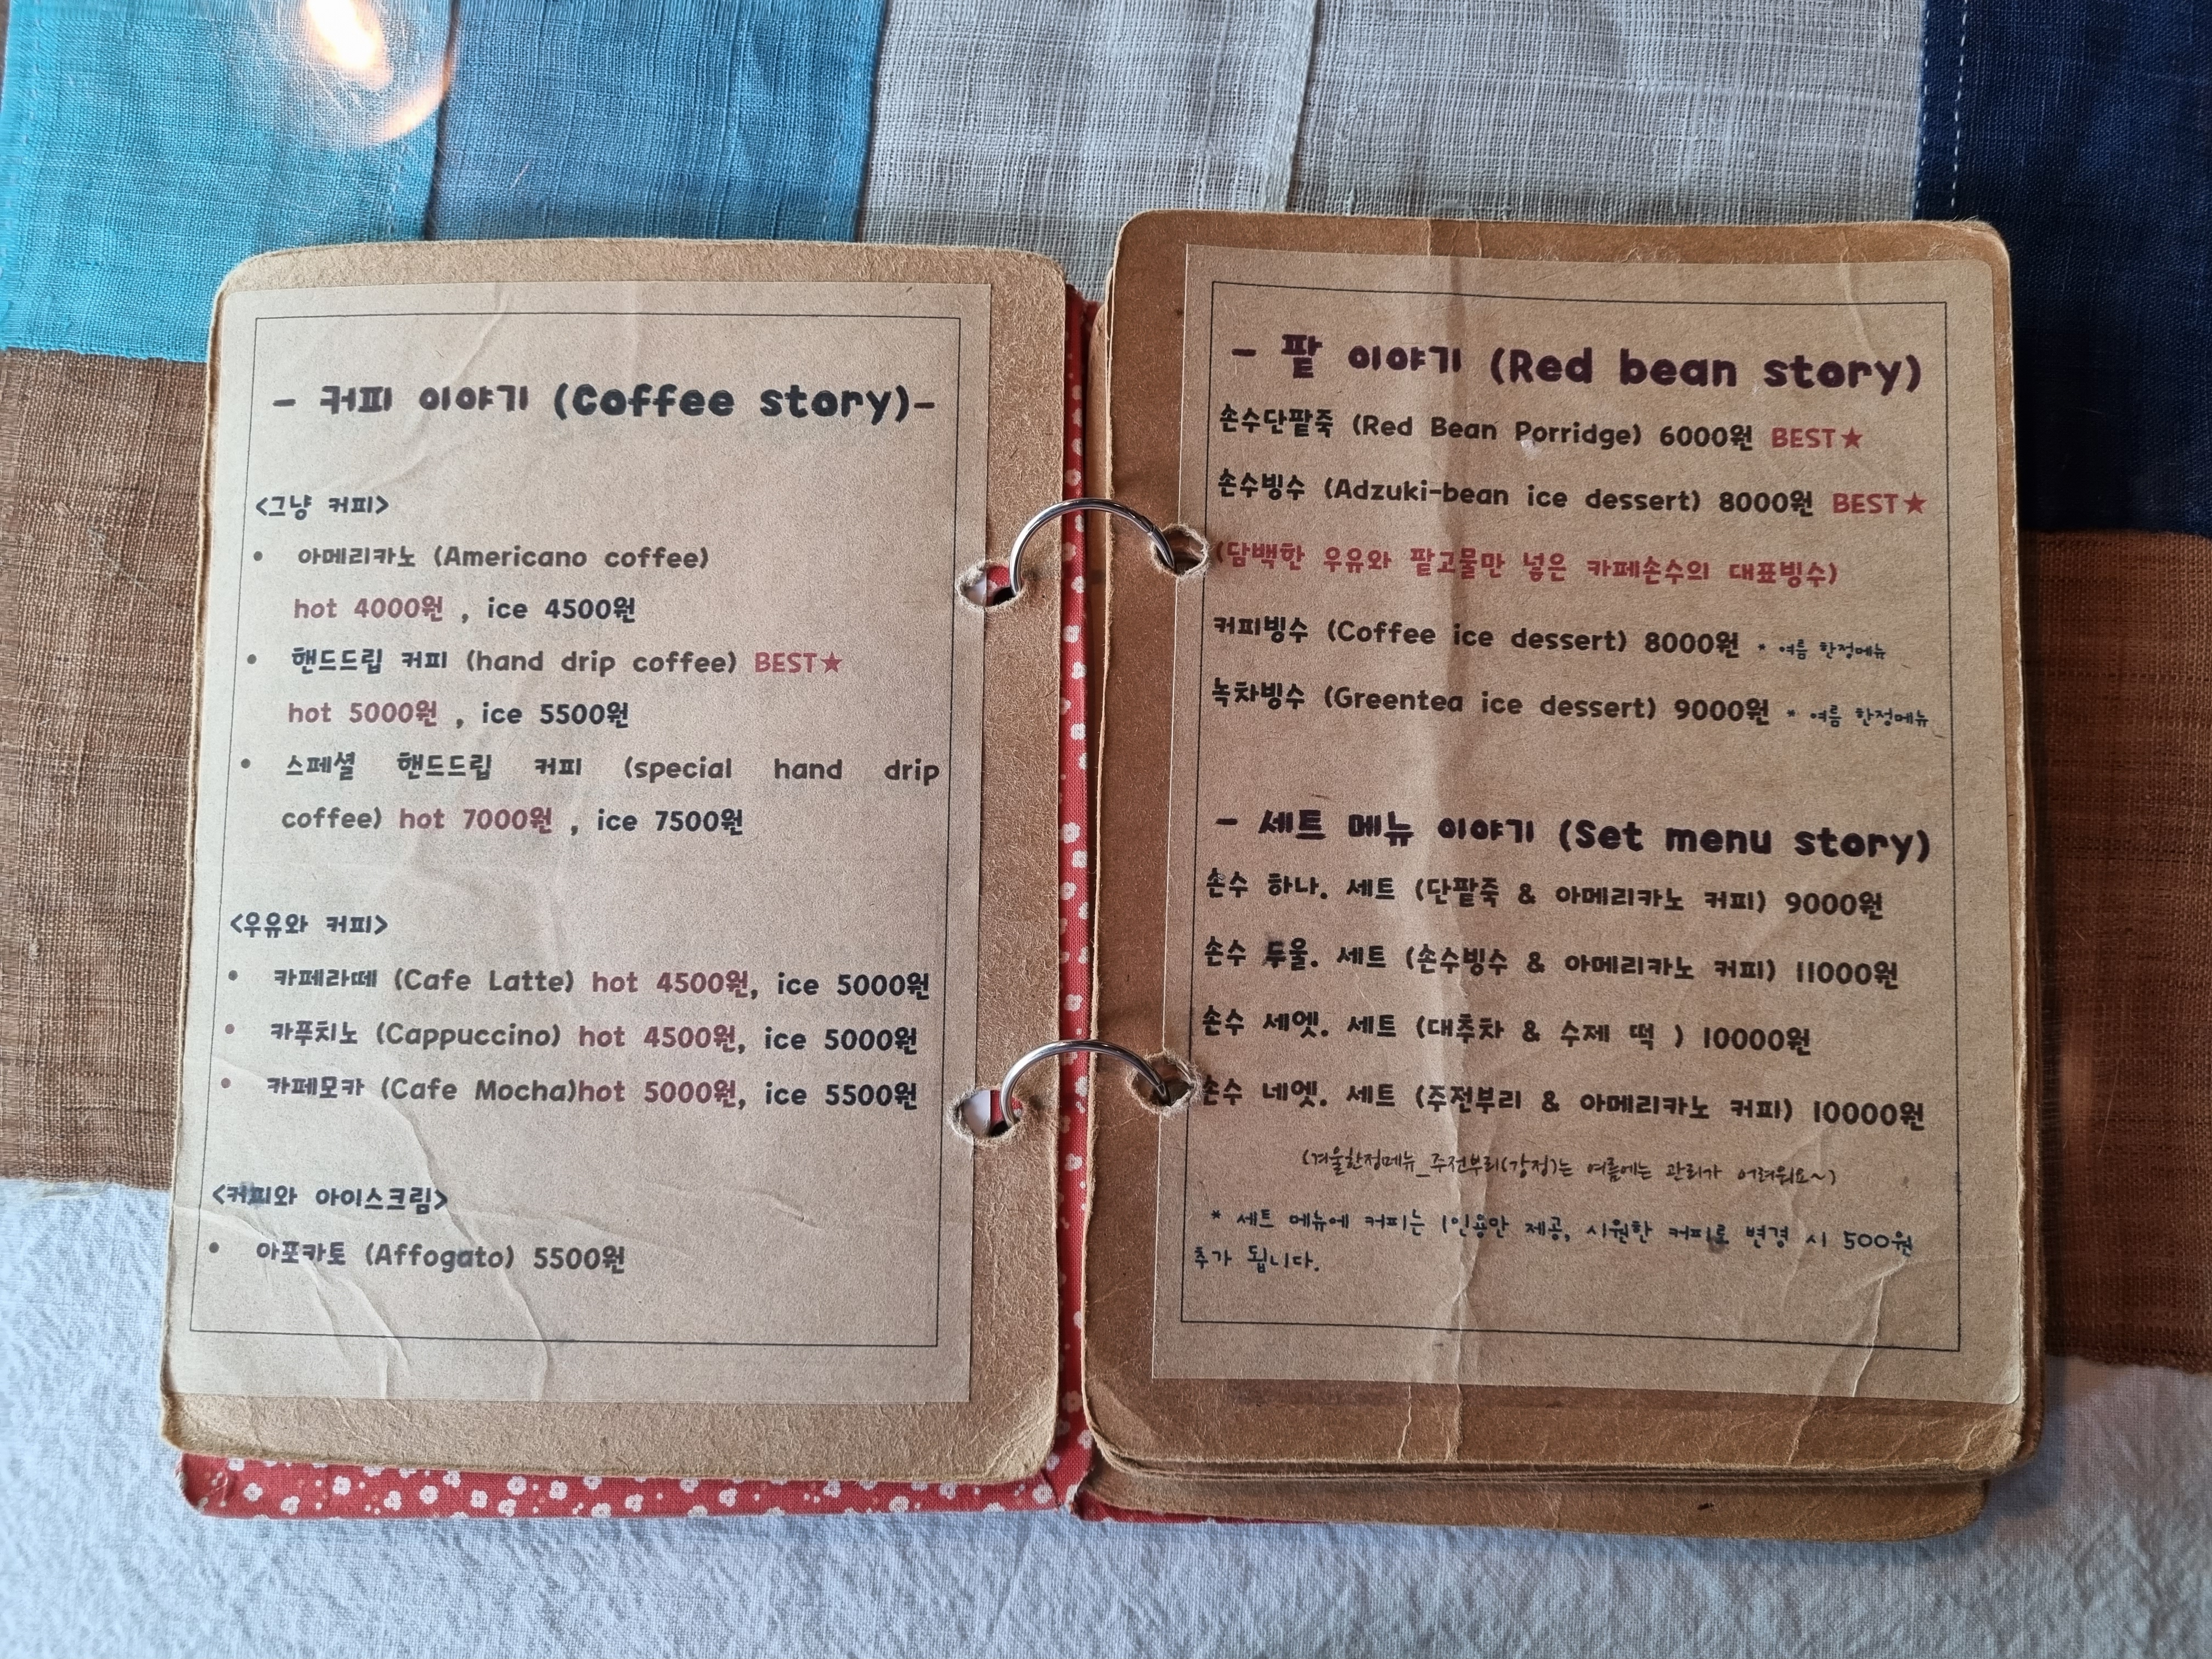 - 커피 이야기 (Coffee story)-
<그냥 커피>
• 아메리카노 (Americano coffee)
hot 4000원 , ice 4500원
• 핸드드립 커피 (hand drip coffee) BEST★
hot 5000원 , ice 5500원
• 스페셜 핸드드립 커피 (special hand drip
coffee) hot 7000원 , ice 7500원
<우유와 커피>
• 카페라떼 (Cafe Latte) hot 4500원, ice 5000원
• 카푸치노 (Cappuccino) hot 4500원, ice 5000원
• 카페모카 (Cafe Mocha)hot 5000원, ice 5500원
<커피와 아이스크림>
• 아포카토 (Affogato) 5500원
- 팥 이야기 (Red bean story)
손수단팥죽 (Red Bean Porridge) 6000원 BEST★
손수빙수 (Adzuki-bean ice dessert) 8000원 BEST★
(담백한 우유와 팥고물만 넣은 카페손수의 대표빙수)
커피빙수 (Coffee ice dessert) 8000원 * 여름 한정메뉴
녹차빙수 (Greentea ice dessert) 9000원 * 여름 한정메뉴
- 세트 메뉴 이야기 (Set menu story)
손수 하나. 세트 (단팥죽 & 아메리카노 커피) 9000원
손수 두울. 세트 (손수빙수 & 아메리카노 커피) 11000원
손수 세엣. 세트 (대추차 & 수제 떡 ) 10000원
손수 네엣. 세트 (주전부리 & 아메리카노 커피) 10000원
(겨울한정메뉴_주전부리(강정)는 여름에는 관리가 어려워요~)
* 세트 메뉴에 커피는 1인용만 제공, 시원한 커피로 변경 시 500원
추가 됩니다.